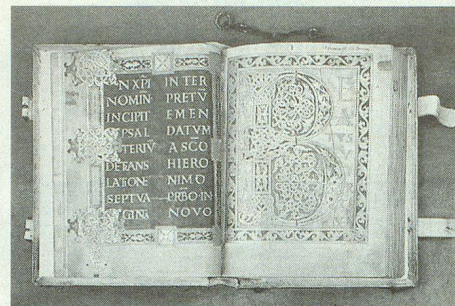 IN XP̄I
NOMIN̄
INCIPIT
PSAL
TERIV̄
DETRANS
LATIONE
SEPTVA
GINT
INTER
PRETV̄
EMEN
DATVM
A SC̄O
HIERO
NIMO
PRB̄O·IN
NOVO
B
E
A